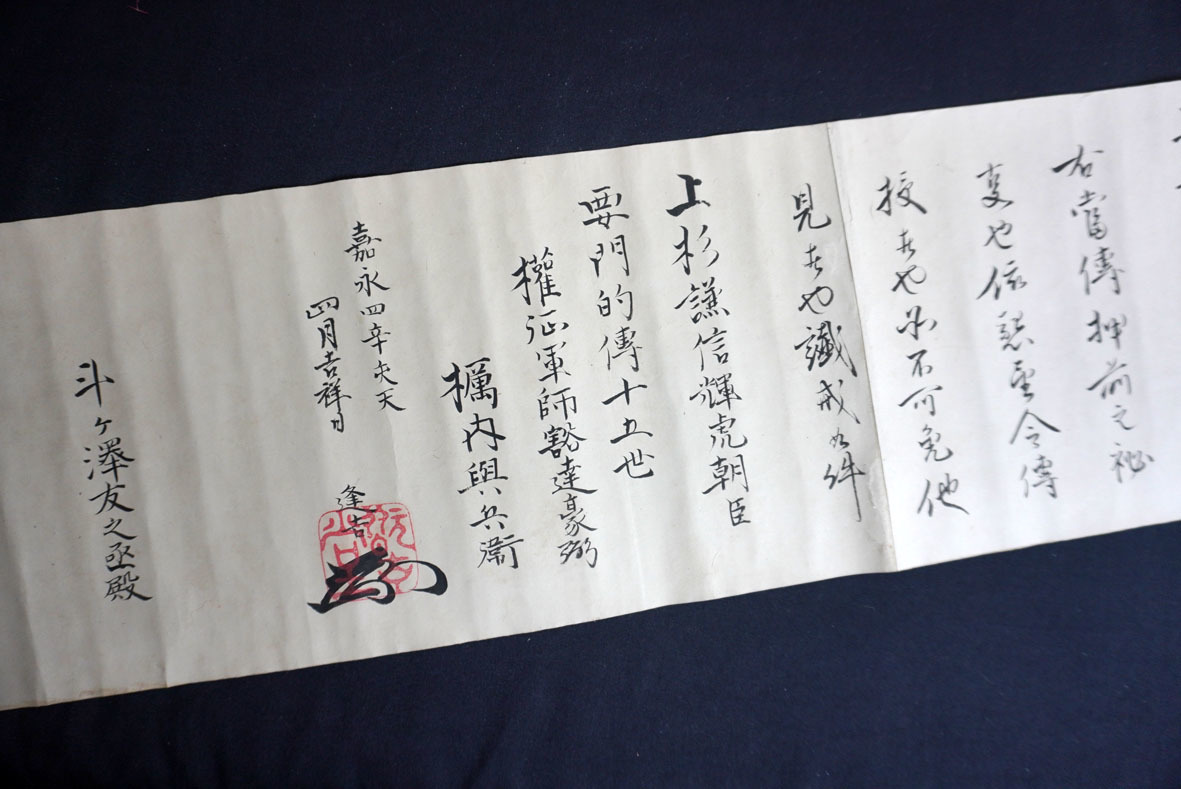 右當傳押前之秘
変也依懇望令傳
授者也必不可免他
見者也誡戒如件
上杉謙信輝虎朝臣
要門的傳十五世
權征軍師豁達豪弼
櫔内與兵衛
逢吉
嘉永四辛亥天
四月吉祥日
斗ヶ澤友之丞殿